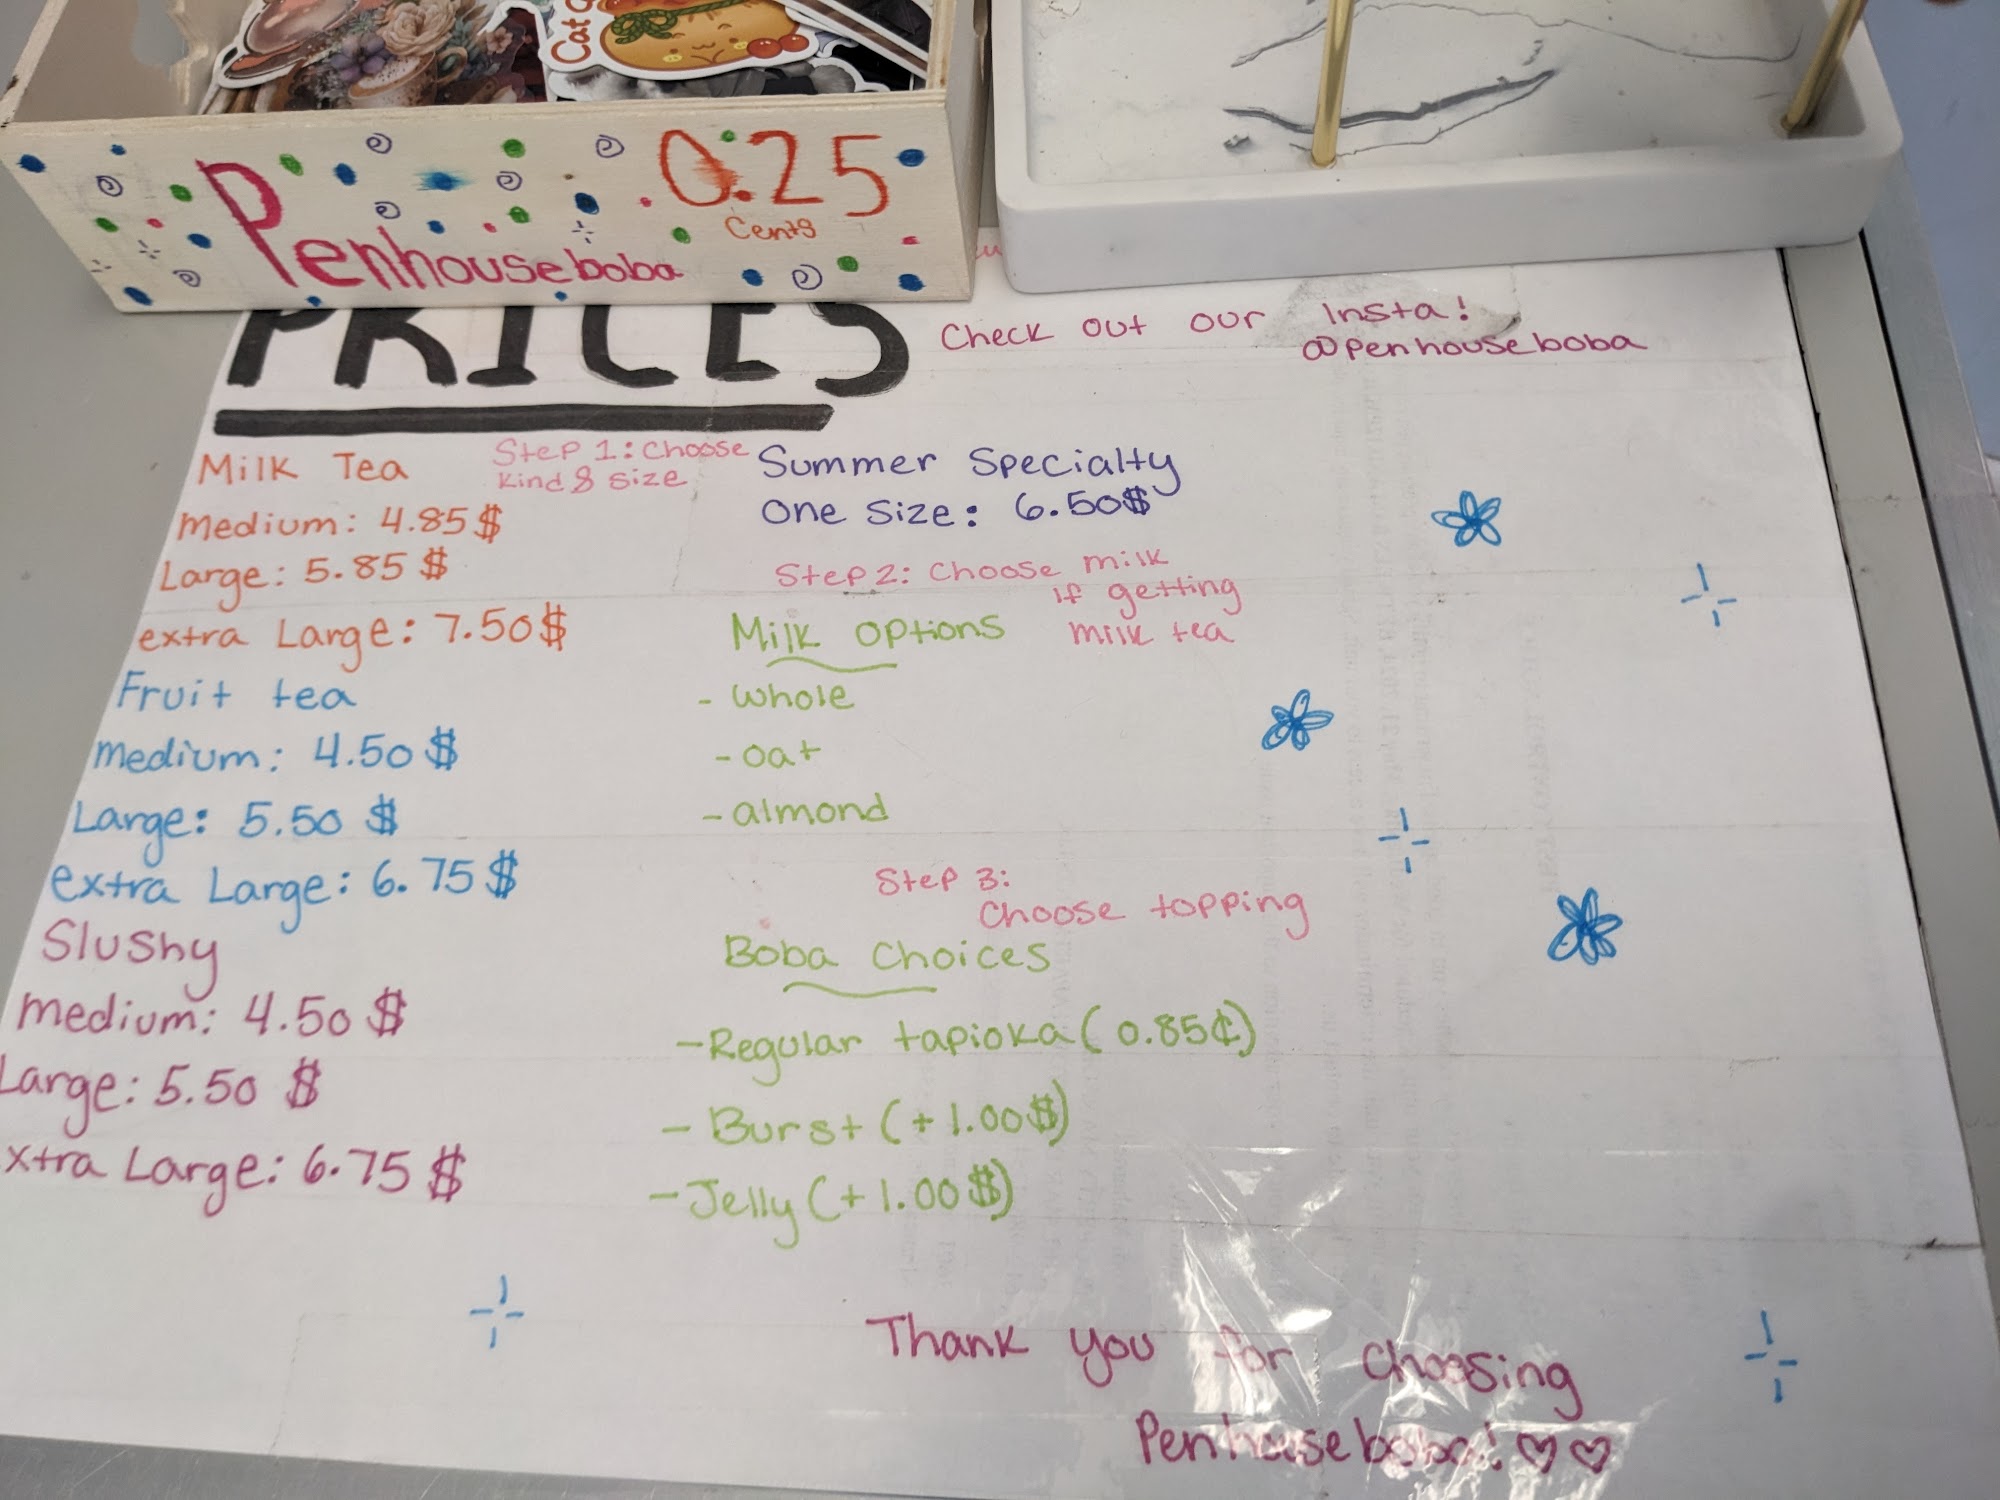 Cat
0.25
Cents
Penhouseboba
PRICES
Check out our Insta!
@penhouseboba
Milk Tea
medium: 4.85$
Large: 5.85$
extra Large: 7.50$
Step 1: Choose
kind & size
Summer Specialty
One Size: 6.50$
Step 2: Choose milk
if getting
milk tea
Milk options
- whole
- oat
- almond
Fruit tea
medium: 4.50$
Large: 5.50$
extra Large: 6.75$
Slushy
medium: 4.50$
Large: 5.50$
xtra Large: 6.75$
Step 3:
Choose topping
Boba Choices
- Regular tapioka (0.85¢)
- Burst (+1.00$)
- Jelly (+1.00$)
Thank you for choosing
Penhouseboba! ♡♡